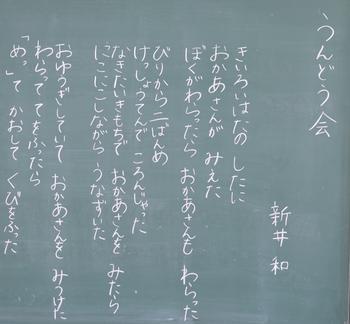 うんどう会
新井 和
きいろいはたの したに
おかあさんが みえた
ぼくがわらったら おかあさんも わらった
びりから二ばんめ
けっしょうてんで ころんじゃった
なきたいきもちで おかあさんを みたら
にこにこしながら うなずいた
おゆうぎしていて おかあさんを みつけた
わらって てをふったら
「めっ」て かおして くびをふった